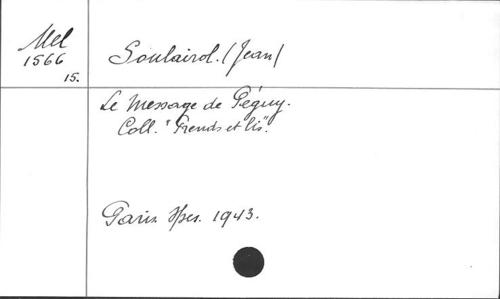 Mel
1566
15.
Soulairol. (Jean)
Le Message de Péguy.
Coll. "Prends et lis".
Paris. Spes. 1943.